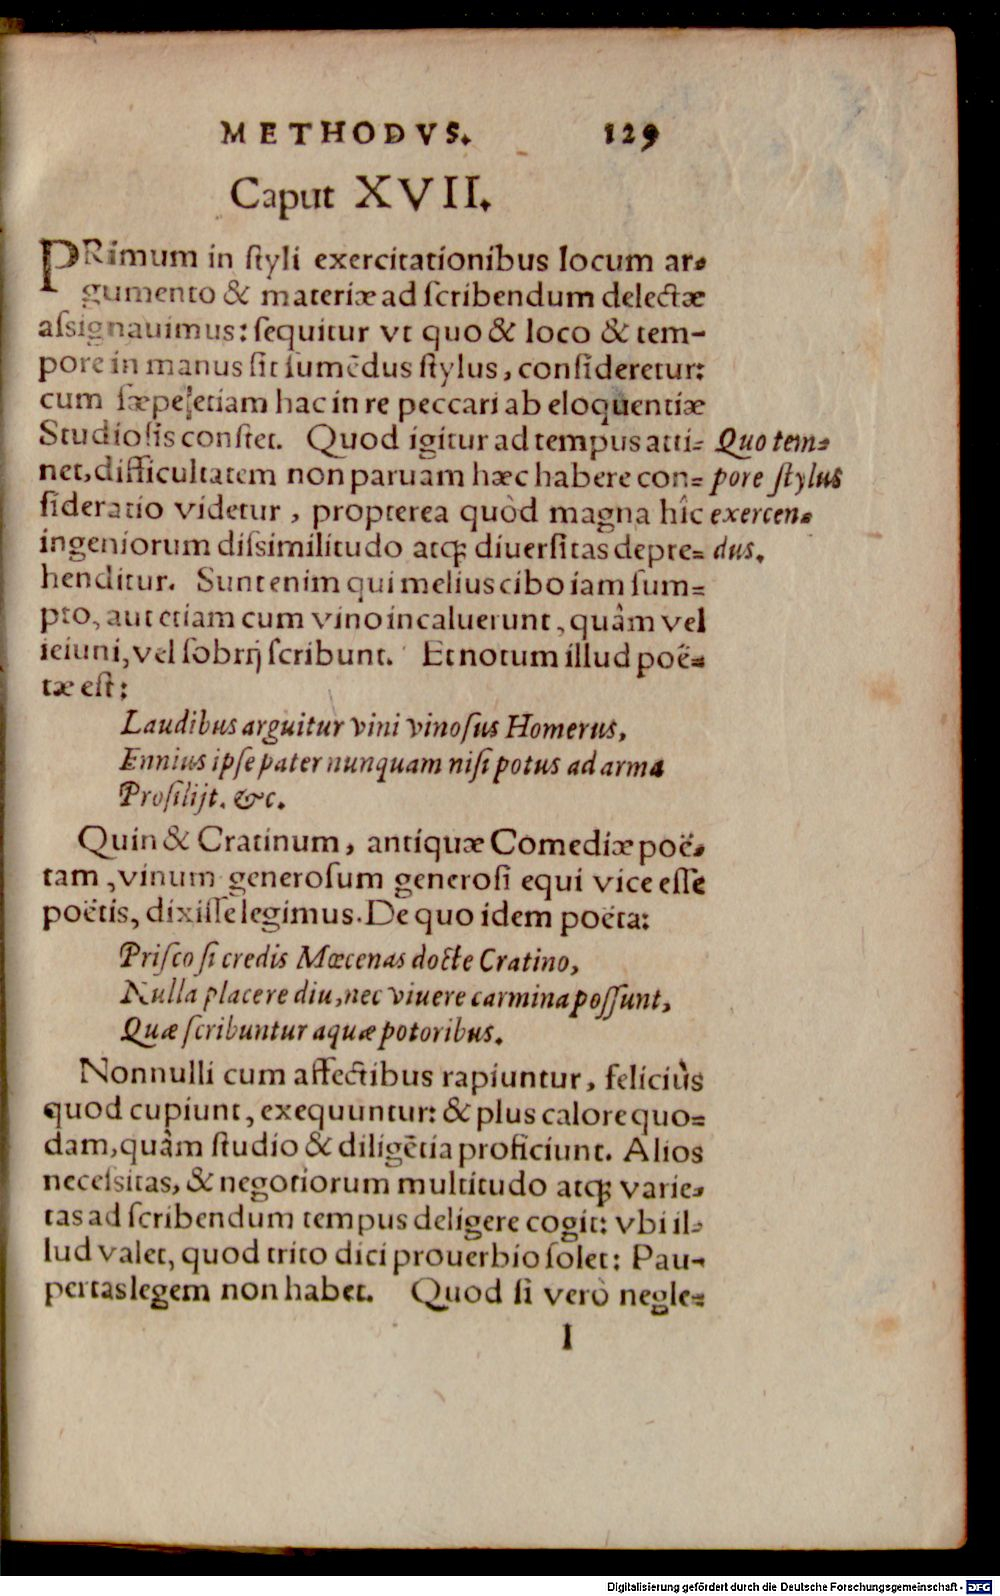 METHODVS. 129
Caput XVII.
PRimum in ſtyli exercitationibus locum ar-
gumento & materiæ ad ſcribendum delectæ
aſsignauimus: ſequitur vt quo & loco & tem-
pore in manus ſit ſumēdus ſtylus, conſideretur:
cum ſæpe etiam hac in re peccari ab eloquentiæ
Studioſis conſtet. Quod igitur ad tempus atti=
net, difficultatem non paruam hæc habere con=
ſideratio videtur, propterea quòd magna hîc
ingeniorum diſsimilitudo atq; diuerſitas depre=
henditur. Sunt enim qui melius cibo iam ſum=
pto, aut etiam cum vino incaluerunt, quàm vel
ieiuni, vel ſobrij ſcribunt. Et notum illud poë=
tæ eſt:
Quo tem-
pore ſtylus
exercen-
dus.
Laudibus arguitur vini vinoſus Homerus,
Ennius ipſe pater nunquam niſi potus ad arma
Proſilijt. &c.
Quin & Cratinum, antiquæ Comediæ poë-
tam, vinum generoſum generoſi equi vice eſſe
poëtis, dixiſſe legimus. De quo idem poëta:
Priſco ſi credis Mœcenas docte Cratino,
Nulla placere diu, nec viuere carmina poſſunt,
Quæ ſcribuntur aquæ potoribus.
Nonnulli cum affectibus rapiuntur, feliciùs
quod cupiunt, exequuntur: & plus calore quo=
dam, quàm ſtudio & diligētia proficiunt. Alios
neceſsitas, & negotiorum multitudo atq; varie-
tas ad ſcribendum tempus deligere cogit: vbi il-
lud valet, quod trito dici prouerbio ſolet: Pau-
pertas legem non habet. Quod ſi verò negle=
I
Digitalisierung gefördert durch die Deutsche Forschungsgemeinschaft - DFG